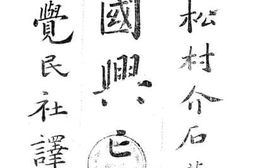 松村介石
國興亡
覺民社譯